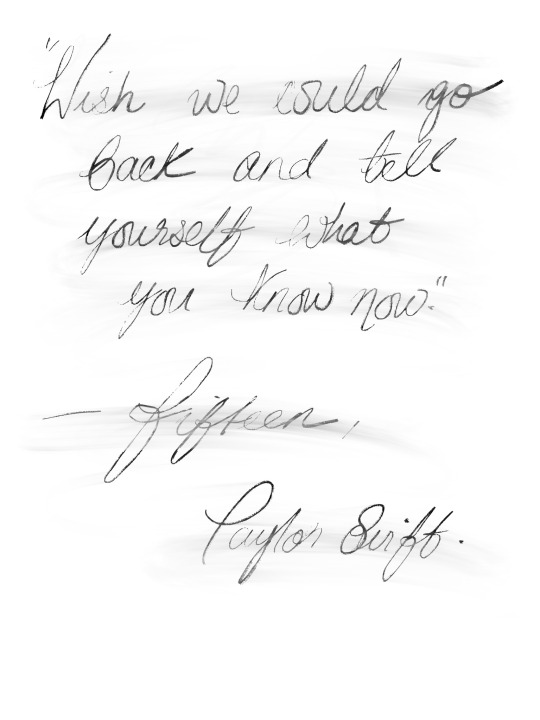 "Wish we could go
back and tell
yourself what
you know now."
— Fifteen,
Taylor Swift.